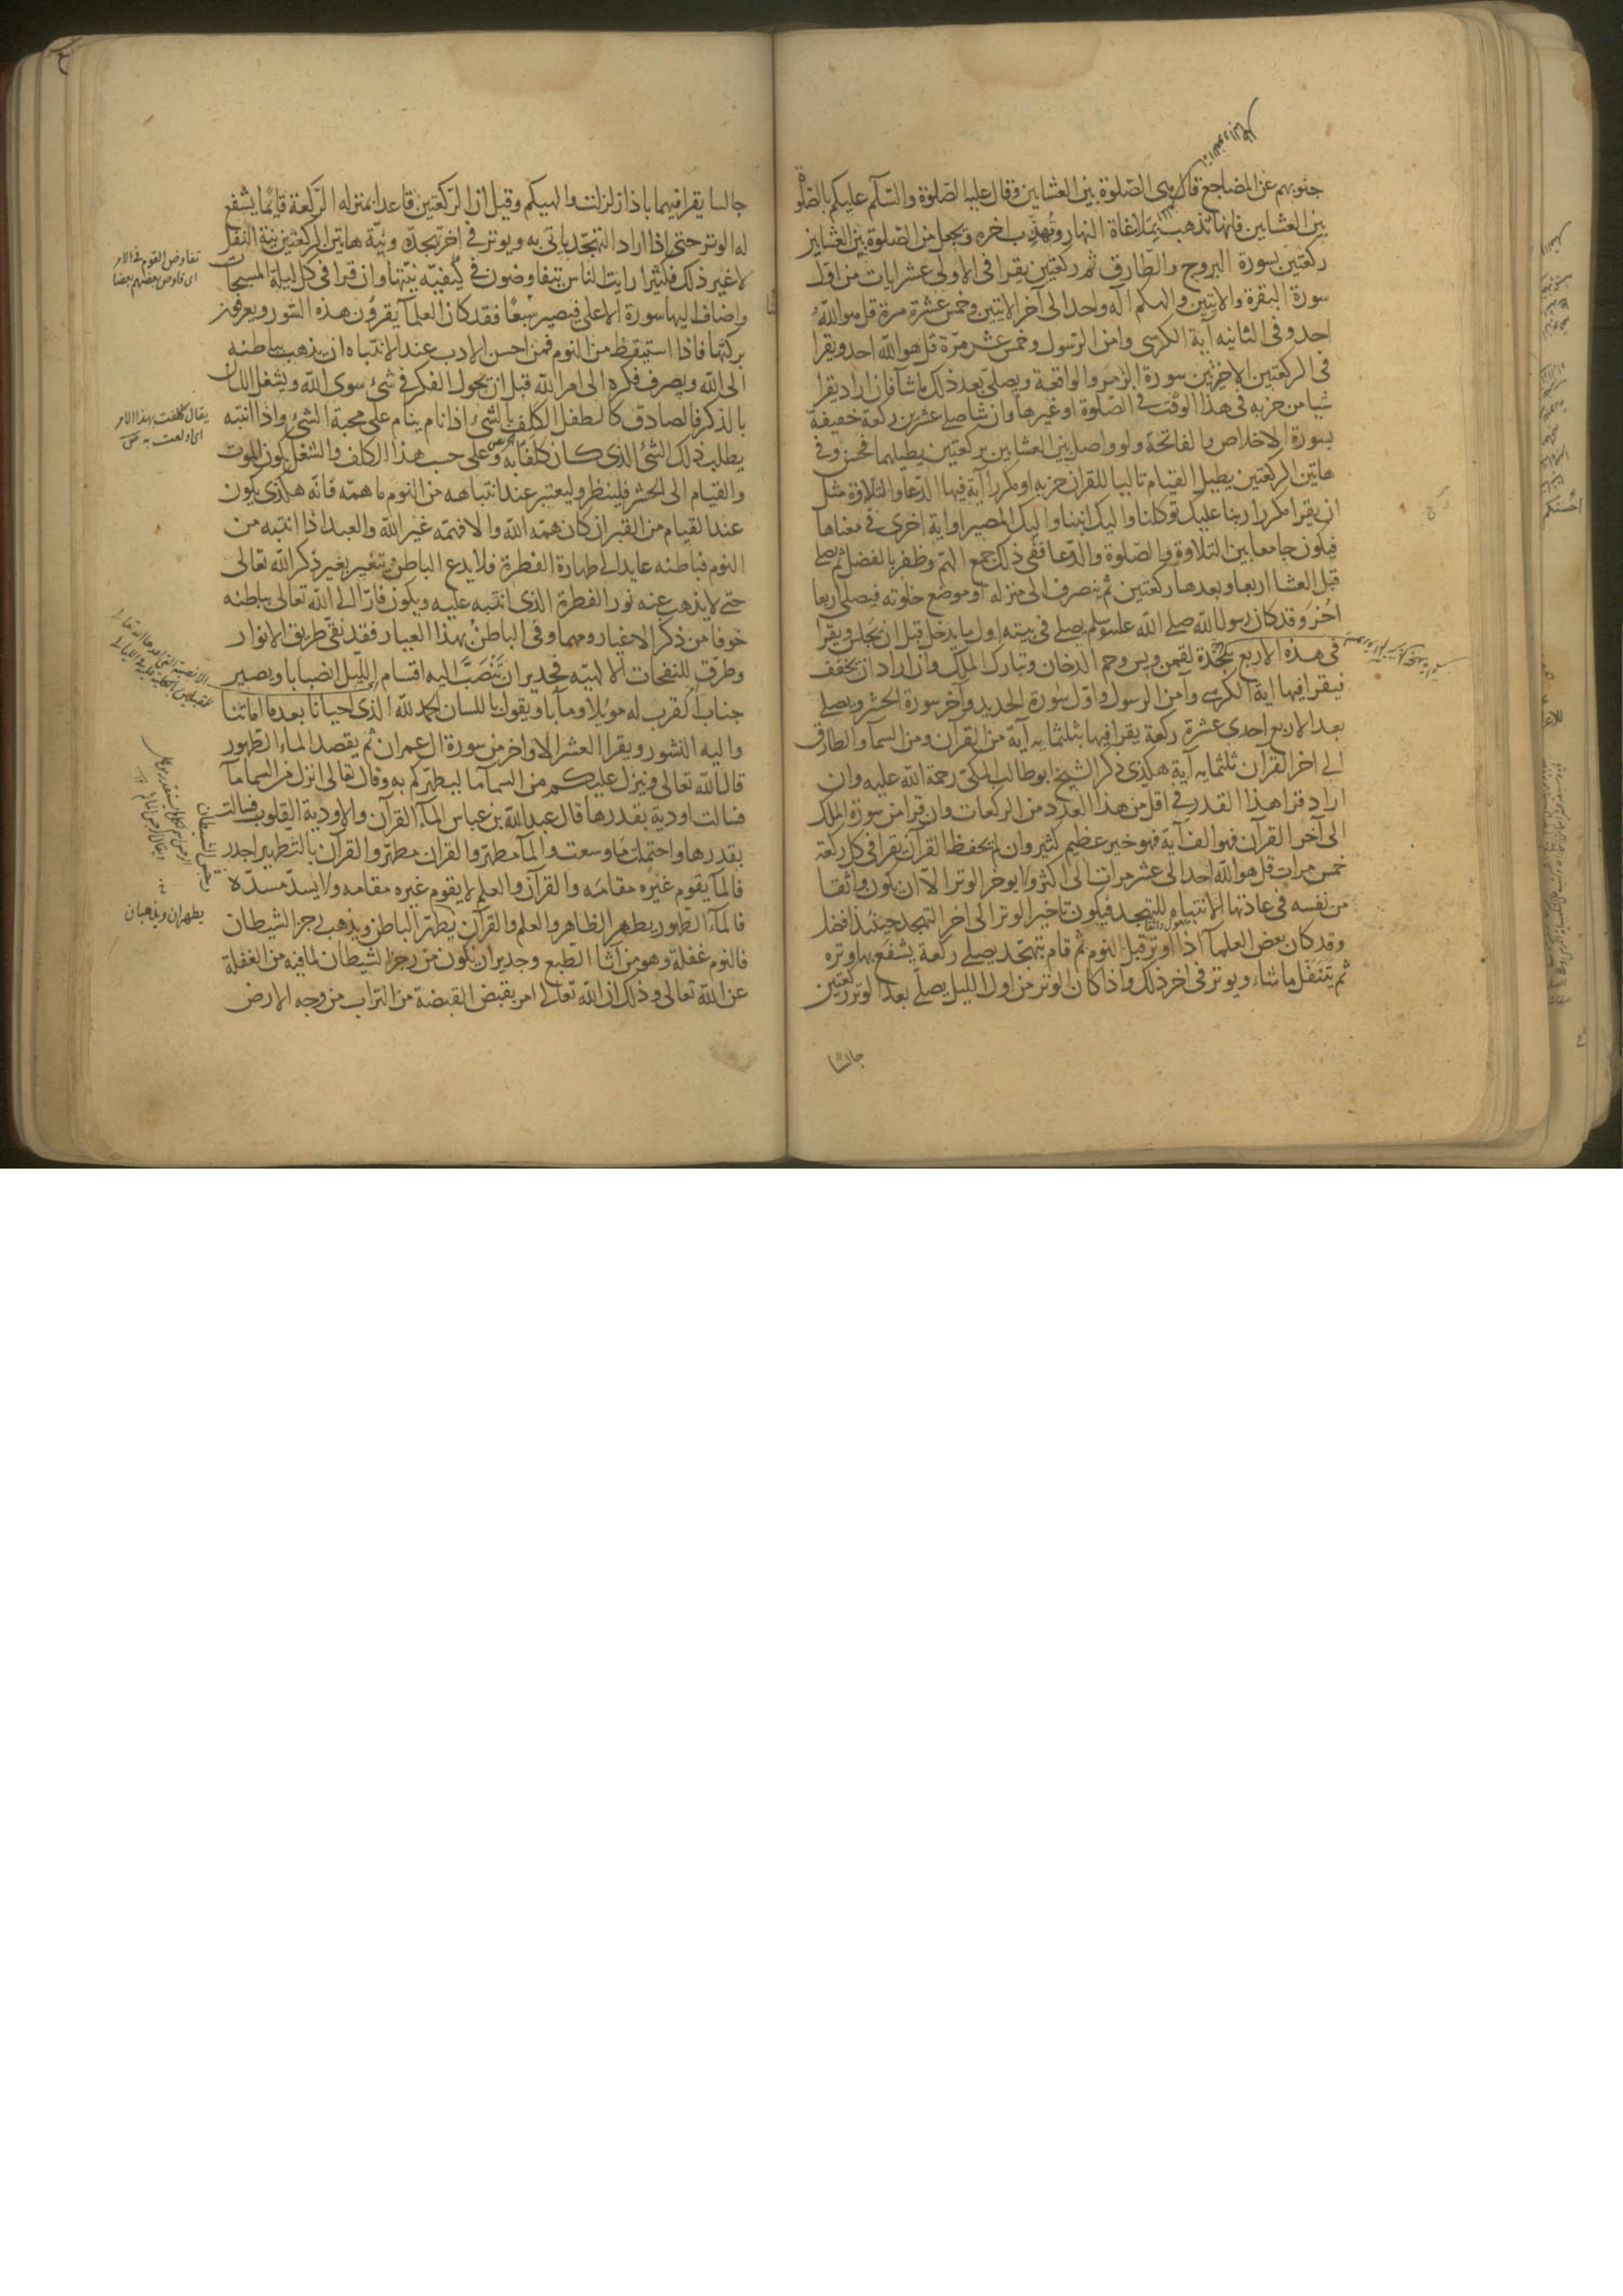 جنوبهم عن المضاجع قال هي الصلوة بين العشاين وقال عليه الصلوة والسلم عليكم بالصلوة
بين العشاين فانها تذهب بملاغاة النهار وتهذب اخره ويجعل من الصلوة بين العشاين
ركعتين بسورة البروج والطارق ثم ركعتين يقرا في الاولى عشر ايات من اول
سورة البقرة والايتين والهكم اله واحد الى آخر الايتين وخمس عشرة مرة قل هو الله
احد وفى الثانيه آية الكرسى وامن الرسول وخمس عشر مرة قل هو الله احد ويقرا
فى الركعتين الاخيرتين سورة الزمر والواقعة ويصلى بعد ذلك ما شآ فان اراد يقرا
شيا من حزبه فى هذا الوقت فى الصلوة او غيرها وان شا صلى عشرين ركعة خفيفة
بسورة الاخلاص والفاتحة ولو واصل بين العشاين بركعتين يطيلهما فحسن وفى
هاتين الركعتين يطيل القيام تاليا للقرآن حزبه او مكررا آية فيها الدعا والتلاوة مثل
ان يقرا مكررا ربنا عليك توكلنا واليك انبنا واليك المصير او اية اخرى فى معناها
فيكون جامعا بين التلاوة والصلوة والدعا ففى ذلك جمع الهم وظفر بالفضل ثم يصلى
قبل العشا اربعا وبعدها ركعتين ثم ينصرف الى منزله او موضع خلوته فيصلى اربعا
اخر وقد كان رسول الله صلى الله عليه وسلم يصلى فى بيته اول ما يدخل قبل ان يجلس ويقرا
فى هذه الاربع سجدة لقمن ويس وحم الدخان وتبارك الملك وان اراد ان يخفف
فيقرا فيها اية الكرسى وآمن الرسول واول سورة الحديد وآخر سورة الحشر ويصلى
بعد الاربع احدى عشرة ركعة يقرا فيها بثلثمايه آية من القرآن من السمآ والطارق
الى اخر القرآن ثلثمايه آية هكذى ذكر الشيخ ابو طالب المكى رحمة الله عليه وان
اراد قرا هذا القدر فى اقل من هذا العدد من الركعات وان قرا من سورة الملك
الى آخر القرآن فهو الف آية فهو خير عظيم كثير وان لم يحفظ القرآن يقرا فى كل ركعة
خمس مرات قل هو الله احد الى عشر مرات الى اكثر ولا يوخر الوتر الا ان يكون واثقا
من نفسه فى عادتها الانتباه للتهجد فيكون تاخير الوتر الى اخر التهجد حينئذ افضل
وقد كان بعض العلمآ اذا اوتر قبل النوم ثم قام يتهجد يصلى ركعة يشفع بها وتره
ثم يتنفل ما شاء ويوتر فى اخر ذلك واذا كان الوتر من اول الليل يصلى بعد الوتر ركعتين
جالسا
جالسا يقرا فيهما باذا زلزلت والهيكم وقيل ان الركعتين قاعدا بمنزله الركعة قايما يشفع
له الوتر حتى اذا اراد التهجد ياتى به ويوتر فى اخر تهجده ونية هاتين الركعتين نية النفل
لا غير ذلك فكثيرا رايت الناس يتفاوضون فى كيفية نيتها وان قرا فى كل ليلة المسبحات
واضاف اليها سورة الاعلى فيصير سبعا فقد كان العلمآ يقرؤن هذه السور ويعرفون
بركتها فاذا استيقظ من النوم فمن احسن الادب عند الانتباه ان يذهب بباطنه
الى الله ويصرف فكره الى امر الله قبل ان يجول الفكر فى شئ سوى الله ويشغل اللسان
بالذكر فالصادق كالطفل الكلف بالشئ اذا نام ينام على محبة الشئ واذا انتبه
يطلب ذلك الشئ الذى كان كلفا به وعلى حسب هذا الكلف والشغل يكون الموت
والقيام الى الحشر فلينظر وليعتبر عند انتباهه من النوم ما همه فانه هكذى يكون
عند القيام من القبر ان كان همه الله والا فهمه غير الله والعبد اذا انتبه من
النوم فباطنه عايد الى طهارة الفطرة فلا يدع الباطن يتغير بغير ذكر الله تعالى
حتى لا يذهب عنه نور الفطرة الذى انتبه عليه ويكون فارا الى الله تعالى بباطنه
خوفا من ذكر الاغيار ومهما وفى الباطن بهذا العيار فقد نقى طريق الانوار
وطرق للنفحات الالهيه فجدير ان تنصب اليه اقسام الليل انصبابا ويصير
جناب القرب له مويلا ومآبا ويقول باللسان الحمد لله الذى احيانا بعد ما اماتنا
واليه النشور ويقرا العشر الاواخر من سورة ال عمران ثم يقصد الماء الطهور
قال الله تعالى وينزل عليكم من السمآ مآ ليطهركم به وقال تعالى انزل من السما مآ
فسالت اودية بقدرها قال عبد الله بن عباس المآء القرآن والاودية القلوب فسالت
بقدرها واحتملت ما وسعت والمآ مطهر والقرآن مطهر والقرآن بالتطهير اجدر
فالمآ يقوم غيره مقامه والقرآن والعلم لا يقوم غيره مقامه ولا يسد مسده
فالمآء الطهور يطهر الظاهر والعلم والقرآن يطهر الباطن ويذهب رجز الشيطان
فالنوم غفلة وهو من آثار الطبع وجدير ان يكون من رجز الشيطان لما فيه من الغفلة
عن الله تعالى وذلك ان الله تعالى امر بقبض القبضة من التراب من وجه الارض
تفاوض القوم فى الامر
اى فاوض بعضهم بعضا
يقال كلفت بهذا الامر
اى اولعت به
يطهران ويذهبان